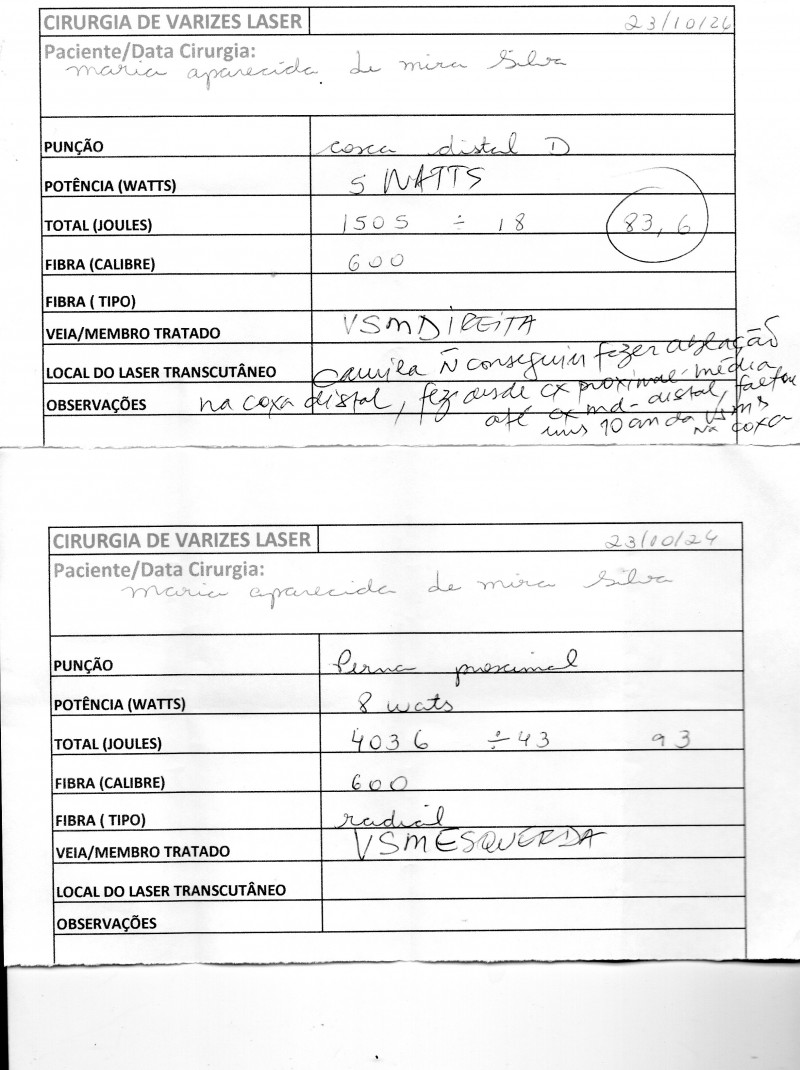 CIRURGIA DE VARIZES LASER 23/10/24
Paciente/Data Cirurgia:
maria aparecida de mira Silva
PUNÇÃO coxa distal D
POTÊNCIA (WATTS) 5 WATTS
TOTAL (JOULES) 1505 ÷ 18 83,6
FIBRA (CALIBRE) 600
FIBRA ( TIPO)
VEIA/MEMBRO TRATADO VSM DIREITA
LOCAL DO LASER TRANSCUTÂNEO Camila Ñ conseguiu fazer ablação
OBSERVAÇÕES na coxa distal, fez desde cx proximal-média
até cx md-distal, faltou
uns 10 cm da VSM
na coxa
CIRURGIA DE VARIZES LASER 23/10/24
Paciente/Data Cirurgia:
maria aparecida de mira Silva
PUNÇÃO Perna proximal
POTÊNCIA (WATTS) 8 wats
TOTAL (JOULES) 4036 ÷43 93
FIBRA (CALIBRE) 600
FIBRA ( TIPO) radial
VEIA/MEMBRO TRATADO VSM ESQUERDA
LOCAL DO LASER TRANSCUTÂNEO
OBSERVAÇÕES